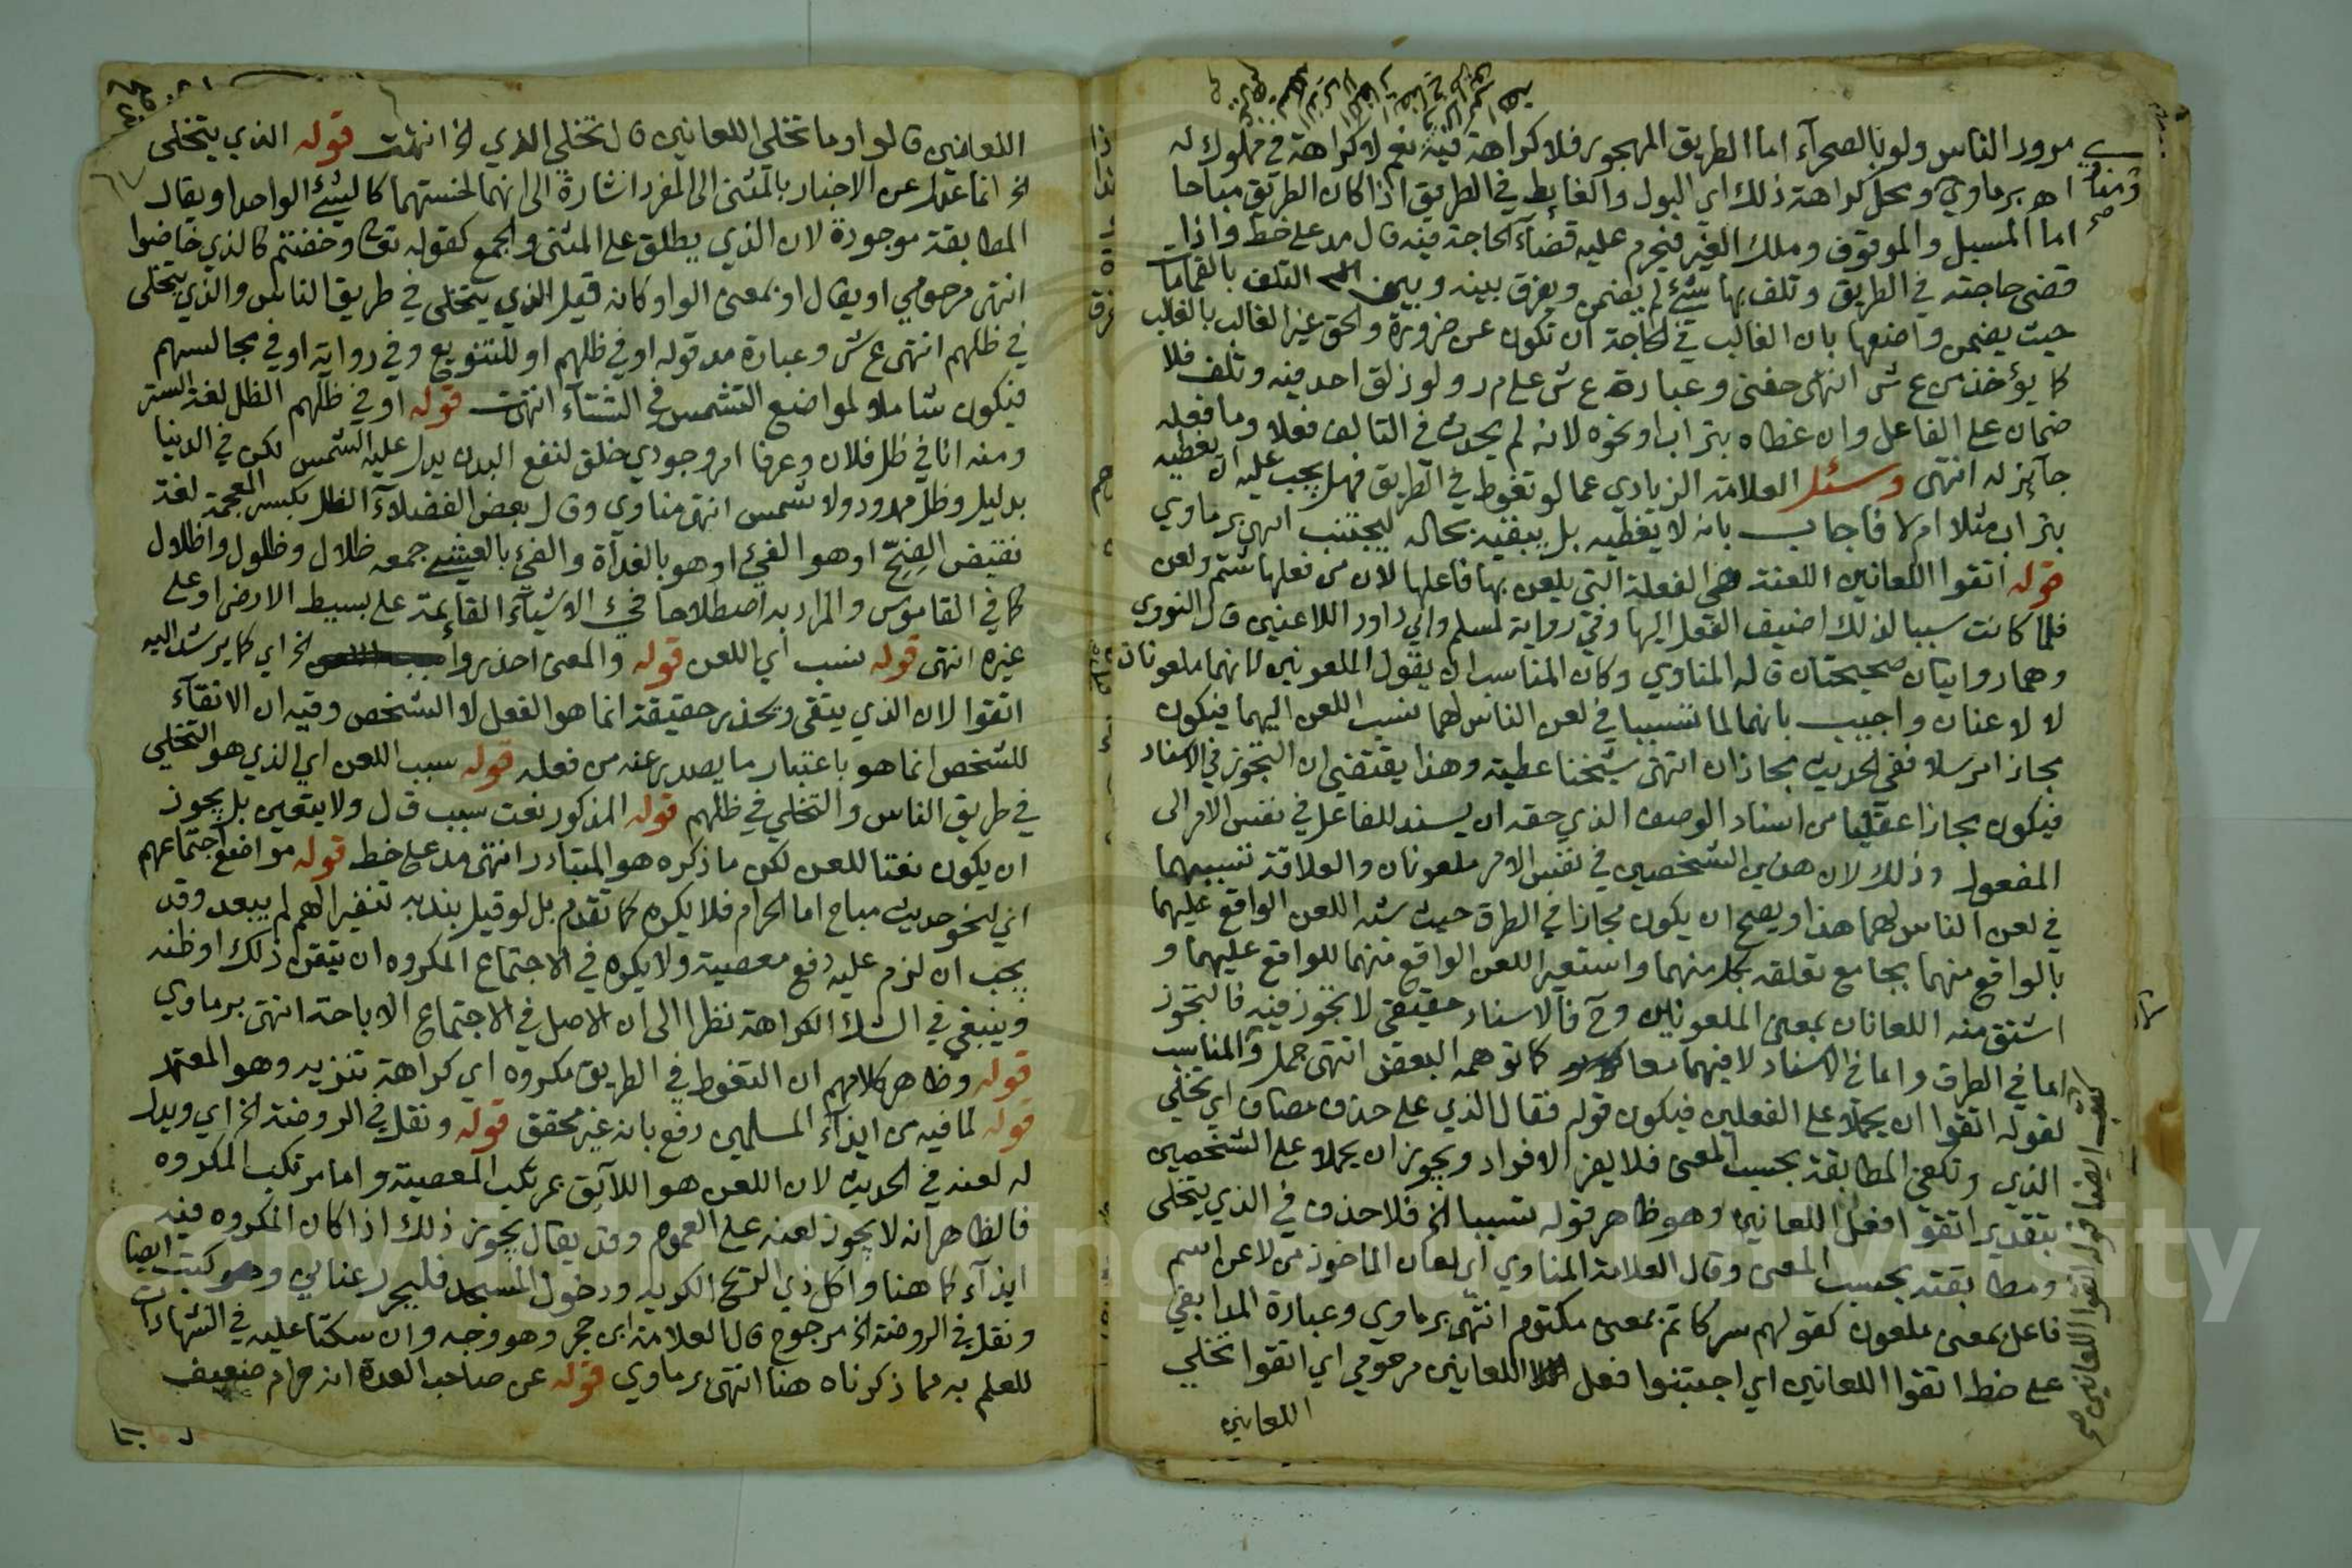 مرور الناس ولو بالصحرآء اما الطريق المهجور فلا كراهة فيه نعم لا كراهة في مملوك له
اه برماوي ومحل كراهة ذلك اي البول والغايط في الطريق اذا كان الطريق مباحا
اما المسبل والموقوف وملك الغير فيحرم عليه قضآء الحاجة فيه قال مد على خط واذا
قضى حاجته في الطريق وتلف بها شئ لم يضمن ويفرق بينه وبين التلف بالقمامات
حيث يضمن واضعها بان الغالب في الحاجة ان تكون عن ضرورة والحق غير الغالب بالغالب
كا يؤخذ من ع ش انتهى حفني وعبارة ع ش على م ر ولو زلق احد فيه وتلف فلا
ضمان على الفاعل وان غطاه بتراب او نحوه لانه لم يحدث في التالف فعلا وما فعله
جآيز له انتهى وسئل العلامة الزيادي عما لو تغوط في الطريق فهل يجب عليه ان يغطيه
بتراب مثلا ام لا فاجاب بانه لا يغطيه بل يبقيه بحاله ليجتنب انتهى برماوي
قوله اتقوا اللعانين اللعنة هي الفعلة التي يلعن بها فاعلها لان من فعلها شتم ولعن
فلما كانت سببا لذلك اضيف الفعل اليها وفي رواية لمسلم وابي داود اللاعنين قال النووي
وهما روايتان صحيحتان قاله المناوي وكان المناسب ان يقول الملعونين لانهما ملعونان
لا لاعنان واجيب بانهما لما تسببا في لعن الناس لهما نسب اللعن اليهما فيكون
مجازا مرسلا ففي الحديث مجازان انتهى شيخنا عطية وهذا يقتضي ان التجوز في الاسناد
فيكون مجازا عقليا من اسناد الوصف الذي حقه ان يسند للفاعل في نفس الامر الى
المفعول وذلك لان هذين الشخصين في نفس الامر ملعونان والعلاقة تسببهما
في لعن الناس لهما هذا ويصح ان يكون مجازا في الطرف حيث شبه اللعن الواقع عليهما
بالواقع منهما بجامع تعلقه بكل منهما واستعير اللعن الواقع منهما للواقع عليهما و
اشتق منه اللعانان بمعنى الملعونان وح فالاسناد حقيقي لا تجوز فيه فالتجوز
اما في الطرف واما في الاسناد لا فيهما معا كما توهمه البعض انتهى جمل والمناسب
لقوله اتقوا ان يحملا على الفعلين فيكون قوله فقال الذي على حذف مضاف اي تخلي
الذي وتكفي المطابقة بحسب المعنى فلا يضر الافراد ويجوز ان يحملا على الشخصين
بتقدير اتقوا فعل اللعانين وهو ظاهر قوله تسببا الخ فلا حذف في الذي يتخلى
ومطابقته بحسب المعنى وقال العلامة المناوي اي لعان الماخوذ من لاعن اسم
فاعل بمعنى ملعون كقولهم سر كاتم بمعنى مكتوم انتهى برماوي وعبارة المدابغي
على خط اتقوا اللعانين اي اجتنبوا فعل اللعانين مرحومي اي اتقوا تخلي
اللعانين
كتب ايضا قوله اتقوا اللعانين صح
اللعانين قالوا وما تخلي اللعانين قال تخلي الذي الخ انتهت قوله الذي يتخلى
الخ انما عدل عن الاخبار بالمثنى الى المفرد اشارة الى انهما لخستهما كالشئ الواحد او يقال
المطابقة موجودة لان الذي يطلق على المثنى والجمع كقوله تعا وخضتم كالذي خاضوا
انتهى مرحومي او يقال او بمعنى الواو كانه قيل الذي يتخلى في طريق الناس والذي يتخلى
في ظلهم انتهى ع ش وعبارة مد قوله او في ظلهم او للتنويع وفي رواية او في مجالسهم
فيكون شاملا لمواضع التشمس في الشتآء انتهت قوله او في ظلهم الظل لغة الستر
ومنه انا في ظل فلان وعرفا امر وجودي خلق لنفع البدن يدل عليه الشمس لكن في الدنيا
بدليل وظل ممدود ولا شمس انتهى مناوي وقال بعض الفضلآء الظل بكسر المعجمة لغة
نقيض الضح او هو الفئ او هو بالغدآة والفئ بالعشي جمعه ظلال وظلول واظلال
كما في القاموس والمراد به اصطلاحا فئ الاشيآء القايمة على بسيط الارض او على
غيره انتهى قوله نسب اي اللعن قوله والمعنى احذروا الخ اي كما يرشد اليه
اتقوا لان الذي يتقى ويحذر حقيقة انما هو الفعل لا الشخص وفيه ان الاتقآء
للشخص انما هو باعتبار ما يصدر عنه من فعله قوله سبب اللعن اي الذي هو التخلي
في طريق الناس والتخلي في ظلهم قوله المذكور نعت سبب قال ولا يتعين بل يجوز
ان يكون نعتا للعن لكن ما ذكره هو المتبادر انتهى مد على خط قوله مواضع اجتماعهم
اي لنحو حديث مباح اما الحرام فلا يكره كما تقدم بل لو قيل بندبه تنفيرا لهم لم يبعد وقد
يجب ان لزم عليه دفع معصية ولا يكره في الاجتماع المكروه ان تيقن ذلك او ظنه
وينبغي في الشك الكراهة نظرا الى ان الاصل في الاجتماع الاباحة انتهى برماوي
قوله وظاهر كلامهم ان التغوط في الطريق مكروه اي كراهة تنزيه وهو المعتمد
قوله لما فيه من ايذآء المسلمين دفع بانه غير محقق قوله ونقل في الروضة الخ اي ويدل
له لعنه في الحديث لان اللعن هو اللآئق بمرتكب المعصية واما مرتكب المكروه
فالظاهر انه لا يجوز لعنه على العموم وقد يقال يجوز ذلك اذا كان المكروه فيه
ايذآء كما هنا واكل ذي الريح الكريه ودخول المسجد فليحرر عناني وكتب ايضا
ونقل في الروضة الخ مرجوح قال العلامة ابن حجر وهو وجه وان سكتا عليه في الشهادات
للعلم به مما ذكرناه هنا انتهى برماوي قوله عن صاحب العدة انه حرام ضعيف